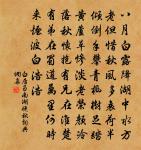 八月白露降湖中水方
老旦夕秋風多衰荷半
傾倒手攀青楓樹足蹋
黃蘆草慘淡老容顏冷
落秋懷抱有兄在淮楚
有弟在蜀道萬里何時
來煙波白浩浩
白居易南湖晚秋詞典